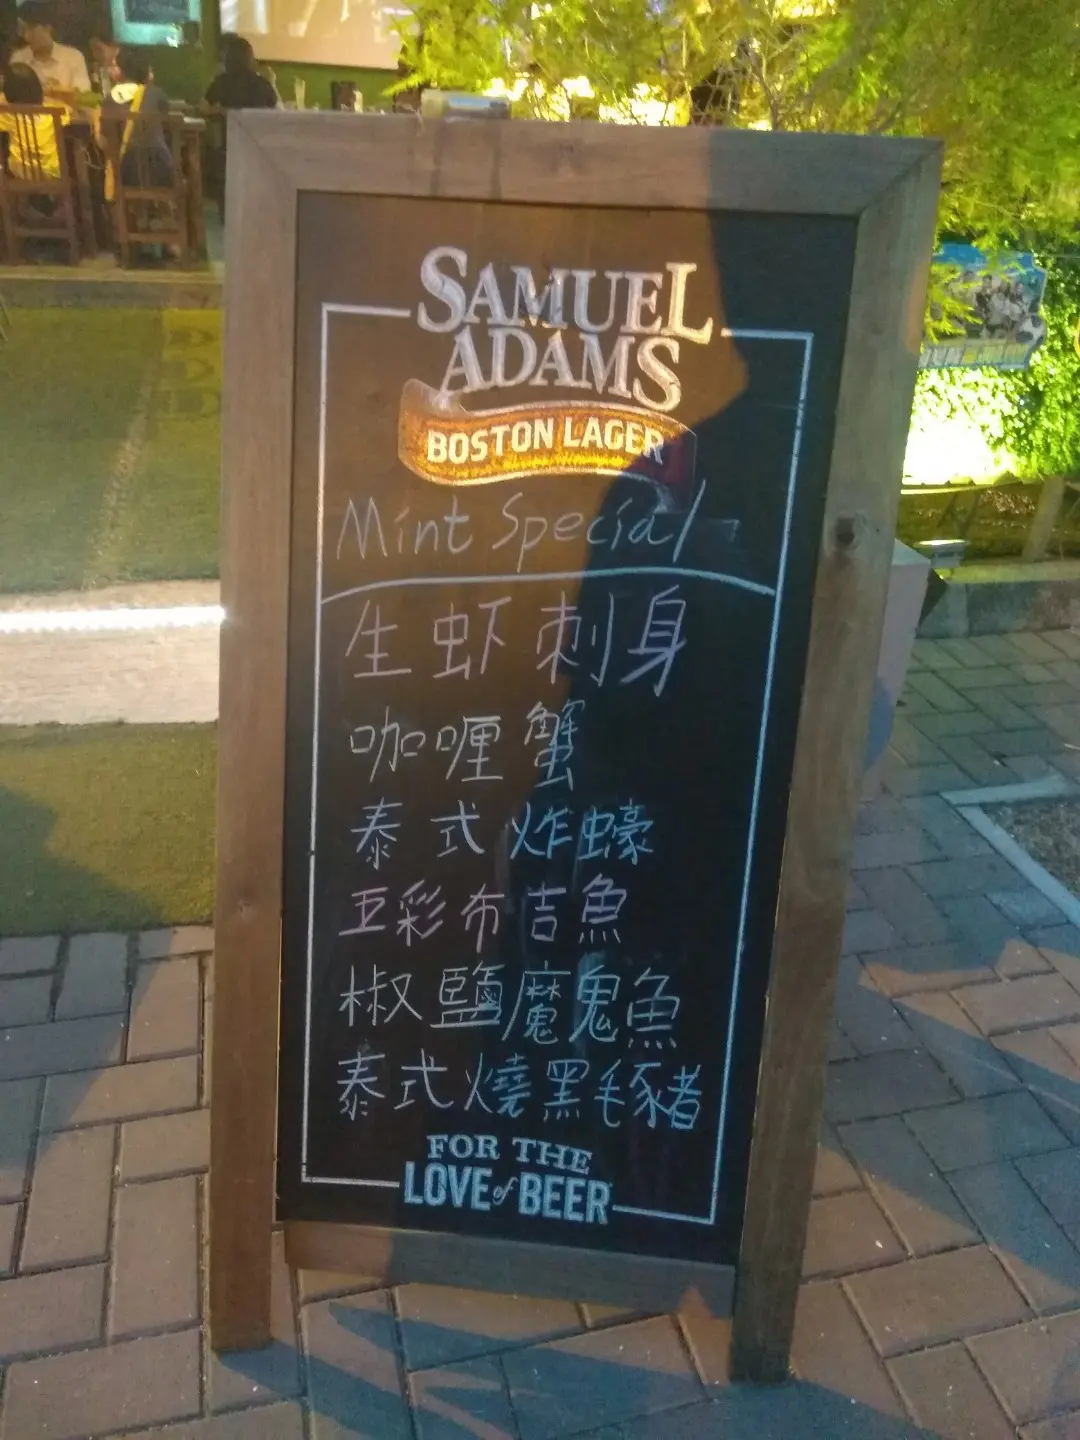 SAMUEL
ADAMS
BOSTON LAGER
Mint Special
生虾刺身
咖喱蟹
泰式炸蠔
五彩布吉魚
椒鹽魔鬼魚
泰式燒黑毛豬
FOR THE
LOVE of BEER